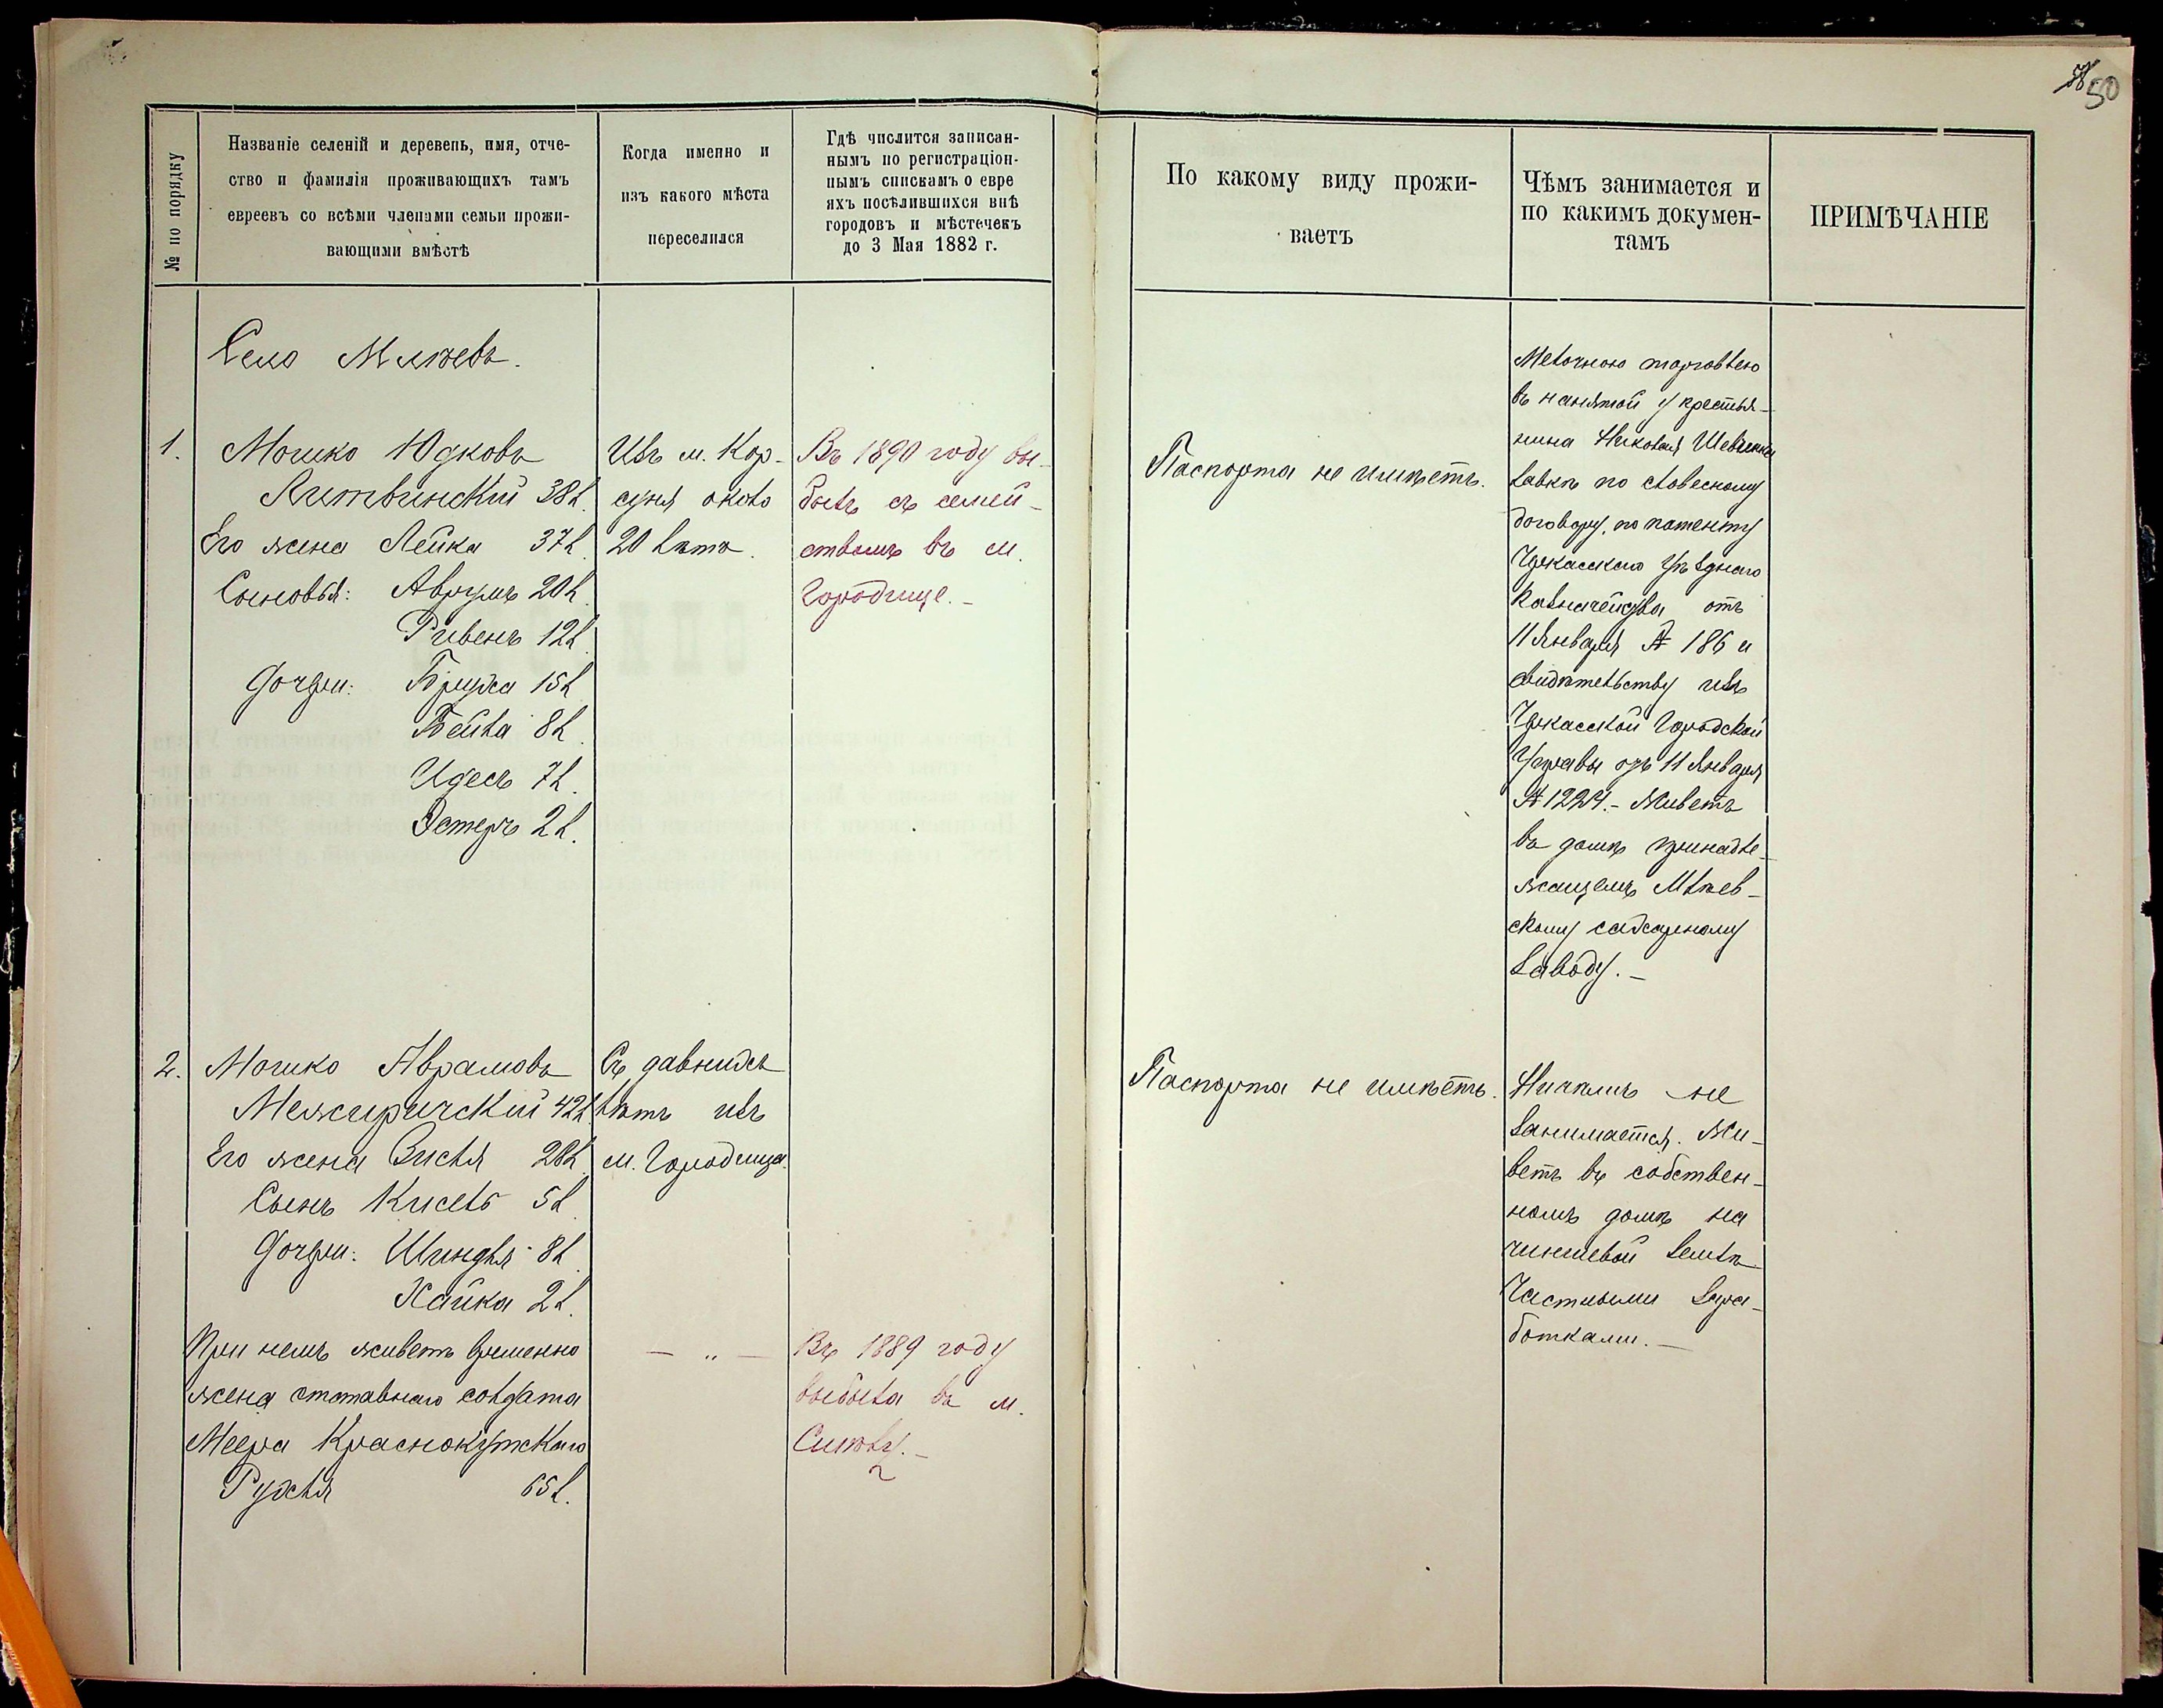 50
№ по порядку
Названіе селеній и деревень, имя, отче-
ство и фамилія проживающихъ тамъ
евреевъ со всѣми членами семьи прожи-
вающими вмѣстѣ
Когда именно и
изъ какого мѣста
переселился
Гдѣ числится записан-
нымъ по регистраціон-
нымъ спискамъ о евре
яхъ посѣлившихся внѣ
городовъ и мѣстечекъ
до 3 Мая 1882 г.
По какому виду прожи-
ваетъ
Чѣмъ занимается и
по какимъ докумен-
тамъ
ПРИМѢЧАНІЕ
Село Млѣевъ.
1.
Мошко Юдковъ
Литвинскій 38 л.
Его жена Лейка 37 л.
Сыновья: Аврумъ 20 л.
Рувенъ 12 л.
Дочери: Бруха 15 л.
Бейла 8 л.
Идесъ 7 л.
Эстеръ 2 л.
Изъ м. Кор-
суня около
20 лѣтъ.
Въ 1890 году вы-
былъ съ семей-
ствомъ въ м.
Городище.-
Паспорта не имѣетъ.
Мелочною торговлею
въ нанятой у крестья-
нина Николая Шевченка
лавкѣ по словесному
договору, по патенту
Черкасскаго Уѣзднаго
Казначейства отъ
11 Января № 186 и
свидѣтельству изъ
Черкасской Городской
Управы отъ 11 Января
№ 1224.- Живетъ
въ домѣ принадле-
жащемъ Млѣев-
скому сахарному
заводу.-
2.
Мошко Аврамовъ
Межиричскій 42 л.
Его жена Зисля 28 л.
Сынъ Кисель 5 л.
Дочери: Шиндля 8 л.
Хайка 2 л.
При немъ живетъ временно
жена отставного солдата
Меера Краснокутскаго
Рухля 65 л.
Съ давнихъ
лѣтъ изъ
м. Городища.
- „ -
Въ 1889 году
выбыла въ м.
Смѣлу.-
Паспорта не имѣетъ.
Ничемъ не
занимается. Жи-
ветъ въ собствен-
номъ домѣ на
чиншевой землѣ
Частными зара-
ботками.-